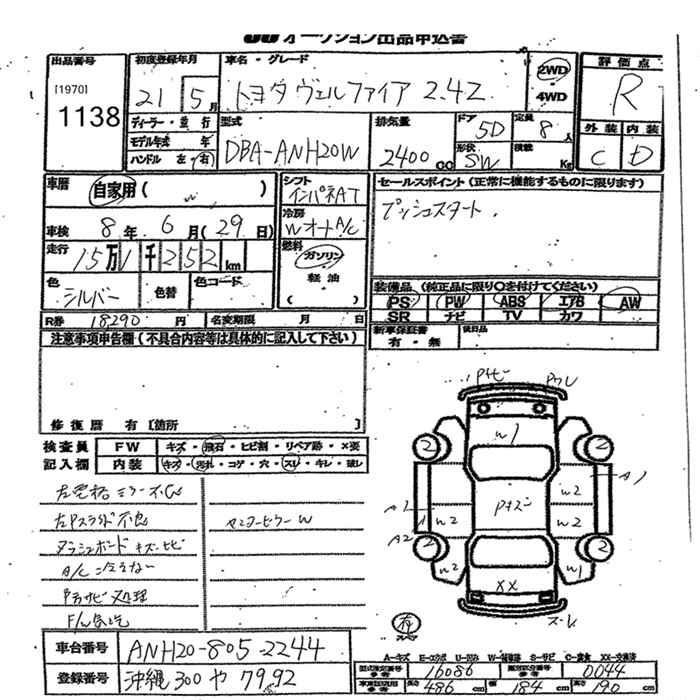 JU オークション出品申込書
出品番号 初度登録年月 車名・グレード 評価点
[1970]
1138
21 5月 トヨタ ヴェルファイア 2.4Z 2WD・4WD R
ディーラー・並行 型式 排気量 ドア 定員 外装 内装
モデル年式 年 DBA-ANH20W 2400cc 5D 8人 C D
ハンドル 左・右 形状 SW 積載 Kg
車歴 自家用( ) シフト インパネAT セールスポイント(正常に機能するものに限ります)
車検 8年 6月(29日) 冷房 WオートA/C プッシュスタート.
走行 15万1千252km 燃料 ガソリン・軽油( )
色 シルバー 色替 色コード 装備品(純正品に限り〇を付けてください)
PS PW ABS エアB AW
SR ナビ TV カワ
R券 18290円 名変期限 月 日 新車保証書 有・無 後日品
注意事項申告欄(不具合内容等は具体的に記入して下さい)
修復歴 有[箇所
検査員 FW キズ・飛石・ヒビ割・リペア跡・×要
記入欄 内装 キズ・汚れ・コゲ・穴・スレ・キレ・破レ
ダッシュボード キズ ヒビ
センターピラー W
W1
2 2
A1 W2
A1 W2 W2
A2
2 2
W2 W1
XX
A-キズ E-エクボ U-凹み W-補修跡 S-サビ C-腐食 XX-交換済
車台番号 ANH20-805-2244
登録番号 沖縄 300 や 7992
型式指定番号 16086 類別区分番号 0044
長さ 486cm 幅 184cm 高さ 190cm